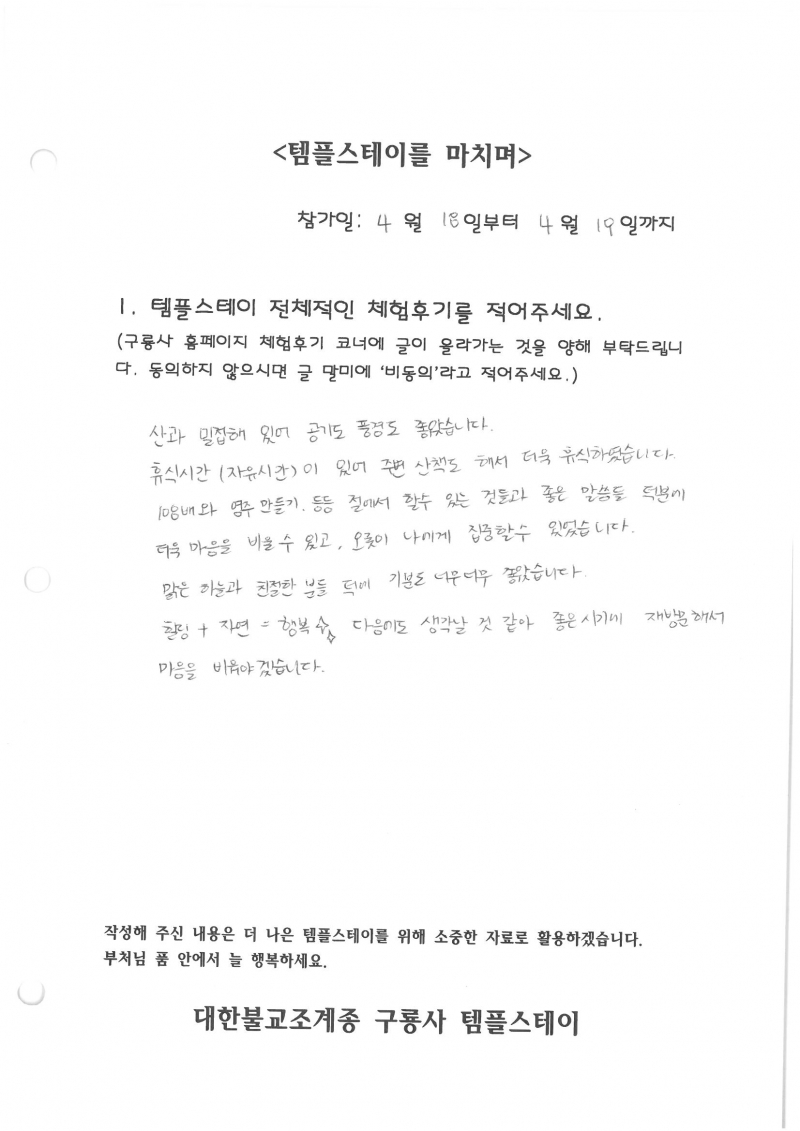 <템플스테이를 마치며>
참가일: 4 월 18일부터 4월 19일까지
1. 템플스테이 전체적인 체험후기를 적어주세요.
(구룡사 홈페이지 체험후기 코너에 글이 올라가는 것을 양해 부탁드립니
다. 동의하지 않으시면 글 말미에 '비동의'라고 적어주세요.)
산과 밀접해 있어 공기도 풍경도 좋았습니다.
휴식시간 (자유시간)이 있어 주변 산책도 해서 더욱 휴식하였습니다.
108배와 염주 만들기. 등등 절에서 할수 있는 것들과 좋은 말씀들 덕분에
더욱 마음을 비울 수 있고, 오롯이 나에게 집중할수 있었습니다.
맑은 하늘과 친절한 분들 덕에 기분도 너무너무 좋았습니다.
힐링 + 자연 = 행복 다음에도 생각날 것 같아 좋은시기에 재방문해서
마음을 비워야겠습니다.
작성해 주신 내용은 더 나은 템플스테이를 위해 소중한 자료로 활용하겠습니다.
부처님 품 안에서 늘 행복하세요.
대한불교조계종 구룡사 템플스테이